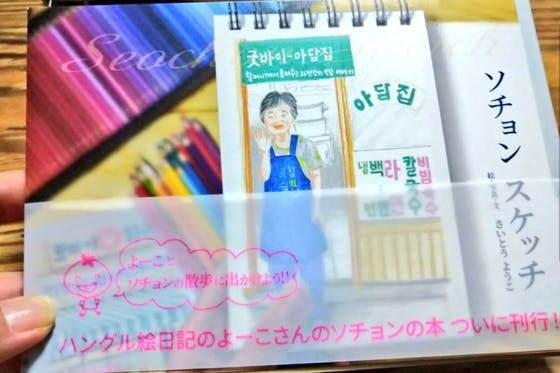 Seoch
굿바이-아담집
할머니께서 들려주신 31년간의 밥집 이야기
아담집
냉면
백반
라면
칼국수
비빔국수
참이슬
ソチョン
スケッチ
絵・写真・文 さいとう ようこ
よーこと
ソチョンの散歩に出かけよう!!
ハングル絵日記のよーこさんのソチョンの本 ついに刊行!